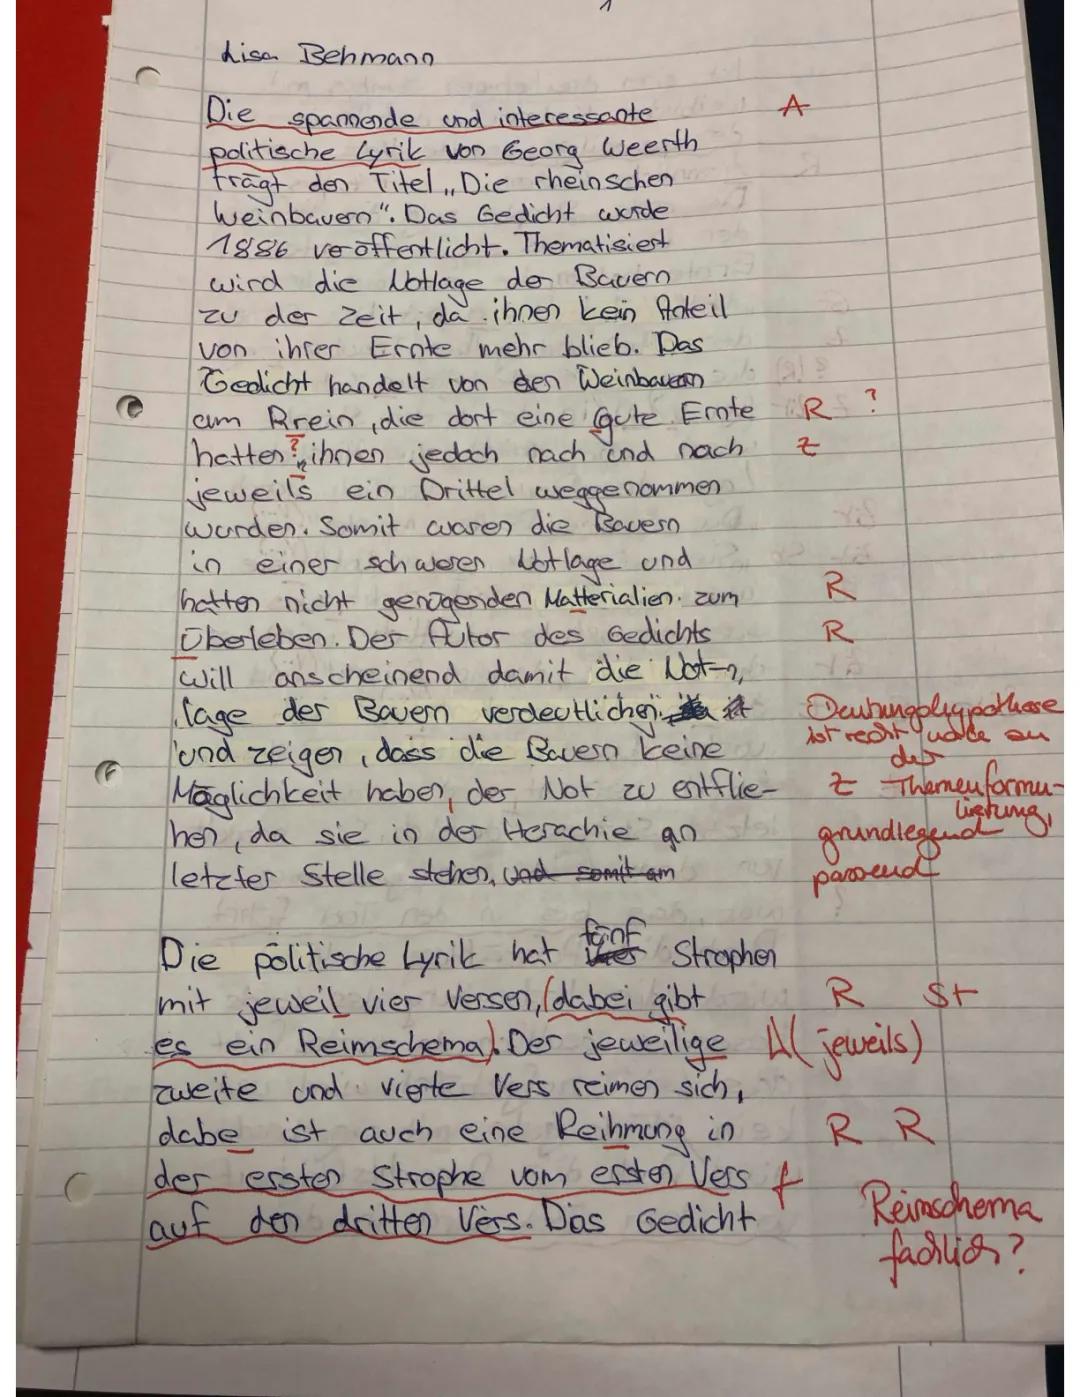 1
Lisa Behmann
Die spannende und interessante A
politische Lyrik von Georg Weerth
trägt den Titel „Die rheinschen
Weinbauern". Das Gedicht wurde
1886 veröffentlicht. Thematisiert
wird die Notlage der Bauern
zu der Zeit, da ihnen kein Anteil
von ihrer Ernte mehr blieb. Das
Gedicht handelt von den Weinbauern
am Rrein, die dort eine gute Ernte R ?
hatten ?, ihnen jedoch nach und nach Z
jeweils ein Drittel weggenommen
wurden. Somit waren die Bauern
in einer schweren Notlage und
hatten nicht genügenden Matterialien zum R
Überleben. Der Autor des Gedichts R
will anscheinend damit die Not-
lage der Bauern verdeutlichen Deutungshypothese
und zeigen, dass die Bauern keine ist recht nahe an
der
Möglichkeit haben, der Not zu entflie- Z Themenformu-
lierung,
hen, da sie in der Herachie an grundlegend
letzter Stelle stehen. und somit am passend
fünf
Die politische Lyrik hat vier Strophen
mit jeweil vier Versen, (dabei gibt R St
es ein Reimschema). Der jeweilige A (jeweils)
zweite und vierte Vers reimen sich,
dabe ist auch eine Reihmung in R R
der ersten Strophe vom ersten Vers f
auf den dritten Vers. Das Gedicht Reimschema
fachlich?